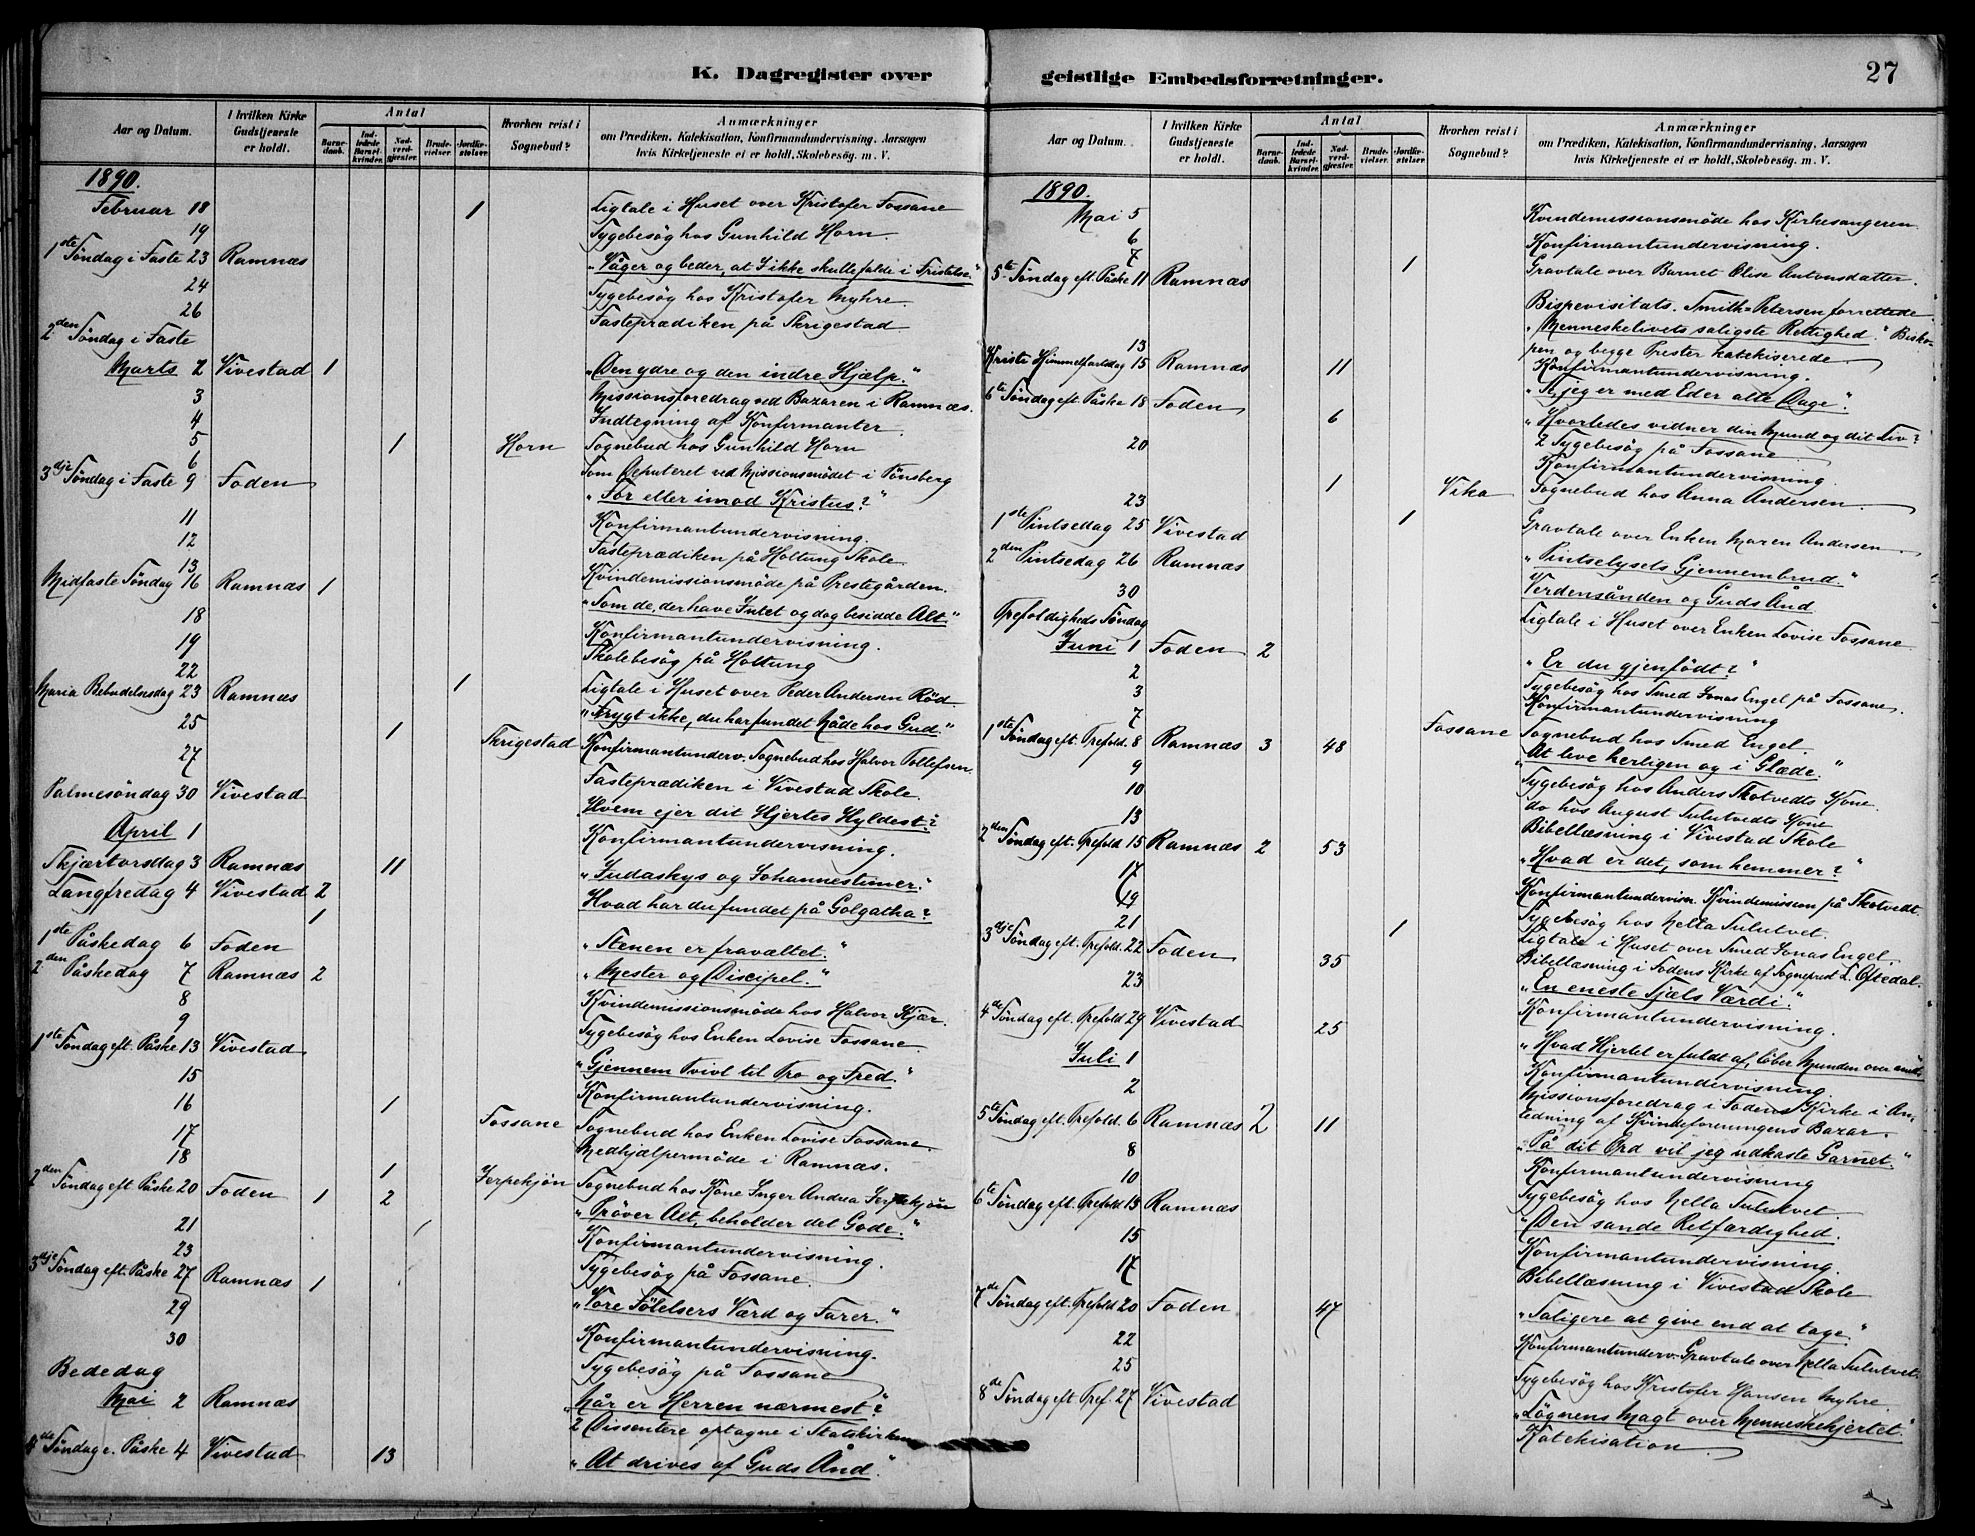 K. Dagregister over geistlige Embedsforretninger. 27
Aar og Datum. I hvilken Kirke Gudstjeneste er holdt. Antal Barnedaab. Indledede Barselkvinder. Nadverdgjester. Brudevielser. Jordfæstelser. Hvorhen reist i Sognebud? Anmærkninger om Prædiken, Katekisation, Konfirmandundervisning, Aarsagen hvis Kirketjeneste ei er holdt, Skolebesøg. m. V.
1890.
Februar 18 1 Ligtale i Huset over Kristofer Fossane
19 Sygebesøg hos Gunhild Horn.
1ste Søndag i Faste 23 Ramnæs "Våger og beder, at I ikke skulle falde i Fristelse."
24 Sygebesøg hos Kristofer Myhre.
26 Fasteprædiken på Skrigestad
2den Søndag i Faste
Marts 2 Vivestad 1 "Den ydre og den indre Hjælp."
3 Missionsforedrag ved Bazaren i Ramnæs.
4 Indtegning af Konfirmanter
5 1 Horn Sognebud hos Gunhild Horn
6 Som Deputeret ved Missionsmødet i Tønsberg
3dje Søndag i Faste 9 Foden "For eller imod Kristus?"
11 Konfirmantundervisning.
12 Fasteprædiken på Holtung Skole.
13 Kvindemissionsmøde på Prestegården.
Midfaste Søndag 16 Ramnæs 1 "Som de, der have Intet og dog besidde Alt."
18 Konfirmantundervisning.
19 Skolebesøg på Holtung
22 1 Ligtale i Huset over Peder Andersen Rød
Maria Bebudelsesdag 23 Ramnæs "Frygt ikke, du har fundet Nåde hos Gud"
25 1 Skrigestad Konfirmantunderv. Sognebud hos Halvor Tollefsen
27 Fasteprædiken i Vivestad Skole.
Palmesøndag 30 Vivestad Hvem ejer dit Hjertes Hyldest?
April 1 Konfirmantundervisning.
Skjærtorsdag 3 Ramnæs 11 "Judaskys og Johannestimer."
Langfredag 4 Vivestad 2 Hvad har du fundet på Golgatha?
1ste Påskedag 6 Foden 1 "Stenen er fravæltet."
2den Påskedag 7 Ramnæs 2 "Mester og Discipel."
8 Kvindemissionsmøde hos Halvor Kjær.
9 Sygebesøg hos Enken Lovise Fossane.
1ste Søndag eft. Påske 13 Vivestad "Gjennem Tvivl til Tro og Fred."
15 Konfirmantundervisning.
16 1 Fossane Sognebud hos Enken Lovise Fossane.
17 Medhjælpermøde i Ramnæs.
18 1 Jerpekjøn Sognebud hos Kone Inger Andrea Jerpekjøn
2den Søndag eft Påske 20 Foden 1 2 "Prøver Alt, beholder det Gode."
21 1 Konfirmantundervisning.
23 Sygebesøg på Fossane.
3dje Søndag eft. Påske 27 Ramnæs 1 "Vore Følelsers Værd og Farer."
29 Konfirmantundervisning.
30 Sygebesøg på Fossane
Bededag
Mai 2 Ramnæs "Når er Herren nærmest?
2 Dissentere optagne i Statskirken
4de Søndag e. Påske 4 Vivestad 13 "At drives af Guds Ånd."
Aar og Datum. I hvilken Kirke Gudstjeneste er holdt. Antal Barnedaab. Indledede Barselkvinder. Nadverdgjester. Brudevielser. Jordfæstelser. Hvorhen reist i Sognebud? Anmærkninger om Prædiken, Katekisation, Konfirmandundervisning, Aarsagen hvis Kirketjeneste ei er holdt, Skolebesøg. m. V.
1890.
Mai 5 Kvindemissionsmøde hos Kirkesangeren
6 Konfirmantundervisning.
7 1 Gravtale over Barnet Elise Antonsdatter.
5te Søndag eft. Påske 11 Ramnæs Bispevisitats. Smith-Petersen forrettede
"Menneskelivets saligste Rettighed." Bisko-
pen og begge Prester katekiserede
13 Konfirmantundervisning.
Kristi Himmelfartsdag 15 Ramnæs 11 "Se jeg er med Eder alle Dage".
6te Søndag eft. Påske 18 Foden 6 "Hvorledes vidner din Mund og dit Liv?
20 2 Sygebesøg på Fossane
Konfirmantundervisning.
1 Vika Sognebud hos Anna Andersen
23 1 Gravtale over Enken Maren Andersen
1ste Pintsedag 25 Vivestad "Pintselysets Gjennembrud."
2den Pintsedag 26 Ramnæs Verdensånden og Guds Ånd
30 Ligtale i Huset over Enken Lovise Fossane
Trefoldigheds Søndag
Juni 1 Foden 2 "Er du gjenfødt?"
2 Sygebesøg hos Smed Jonas Engel på Fossane.
3 Konfirmantundervisning
7 Fossane Sognebud hos Smed Engel.
1ste Søndag eft. Trefold. 8 Ramnæs 3 48 At leve herligen og i Glæde."
9 Sygebesøg hos Anders Skotvedts Kone
10 do hos August Sulutvedts Kone
13 Bibellæsning i Vivestad Skole
2den Søndag eft. Trefold 15 Ramnæs 2 53 "Hvad er det, som hemmer?"
17 Konfirmantundervisn. Kvindemission på Skotvedt.
19 Sygebesøg hos Nella Sulutvet.
21 1 Ligtale i Huset over Smed Jonas Engel.
3dje Søndag eft. Trefold. 22 Foden 35 Bibellæsning i Fodens Kirke af Sogneprest L. Oftedal.
"En eneste Sjæls Værdi."
23 Konfirmantundervisning.
4de Søndag eft. Trefold 29 Vivestad 25 "Hvad Hjertet er fuldt af, løber Munden over med"
Juli 1 Konfirmantundervisning
2 Missionsforedrag i Fodens Kirke i An-
ledning af Kvindeforeningens Bazar.
5te Søndag eft. Trefold. 6 Ramnæs 2 11 "På dit Ord vil jeg udkaste Garnet."
8 Konfirmantundervisning
10 Sygebesøg hos Nella Sulutvet.
6te Søndag eft. Trefold 13 Ramnæs "Den sande Retfærdighed.
15 Konfirmantundervisning.
17 Bibellæsning i Vivestad Skole
7de Søndag eft. Trefold 20 Foden 47 "Saligere at give end at tage."
22 Konfirmantunderv. Gravtale over Nella Sulutvet.
25 Sygebesøg hos Kristofer Hansen Myhre
8de Søndag eft. Tref 27 Vivestad "Løgnens Magt over Menneskehjertet."
Katekisation